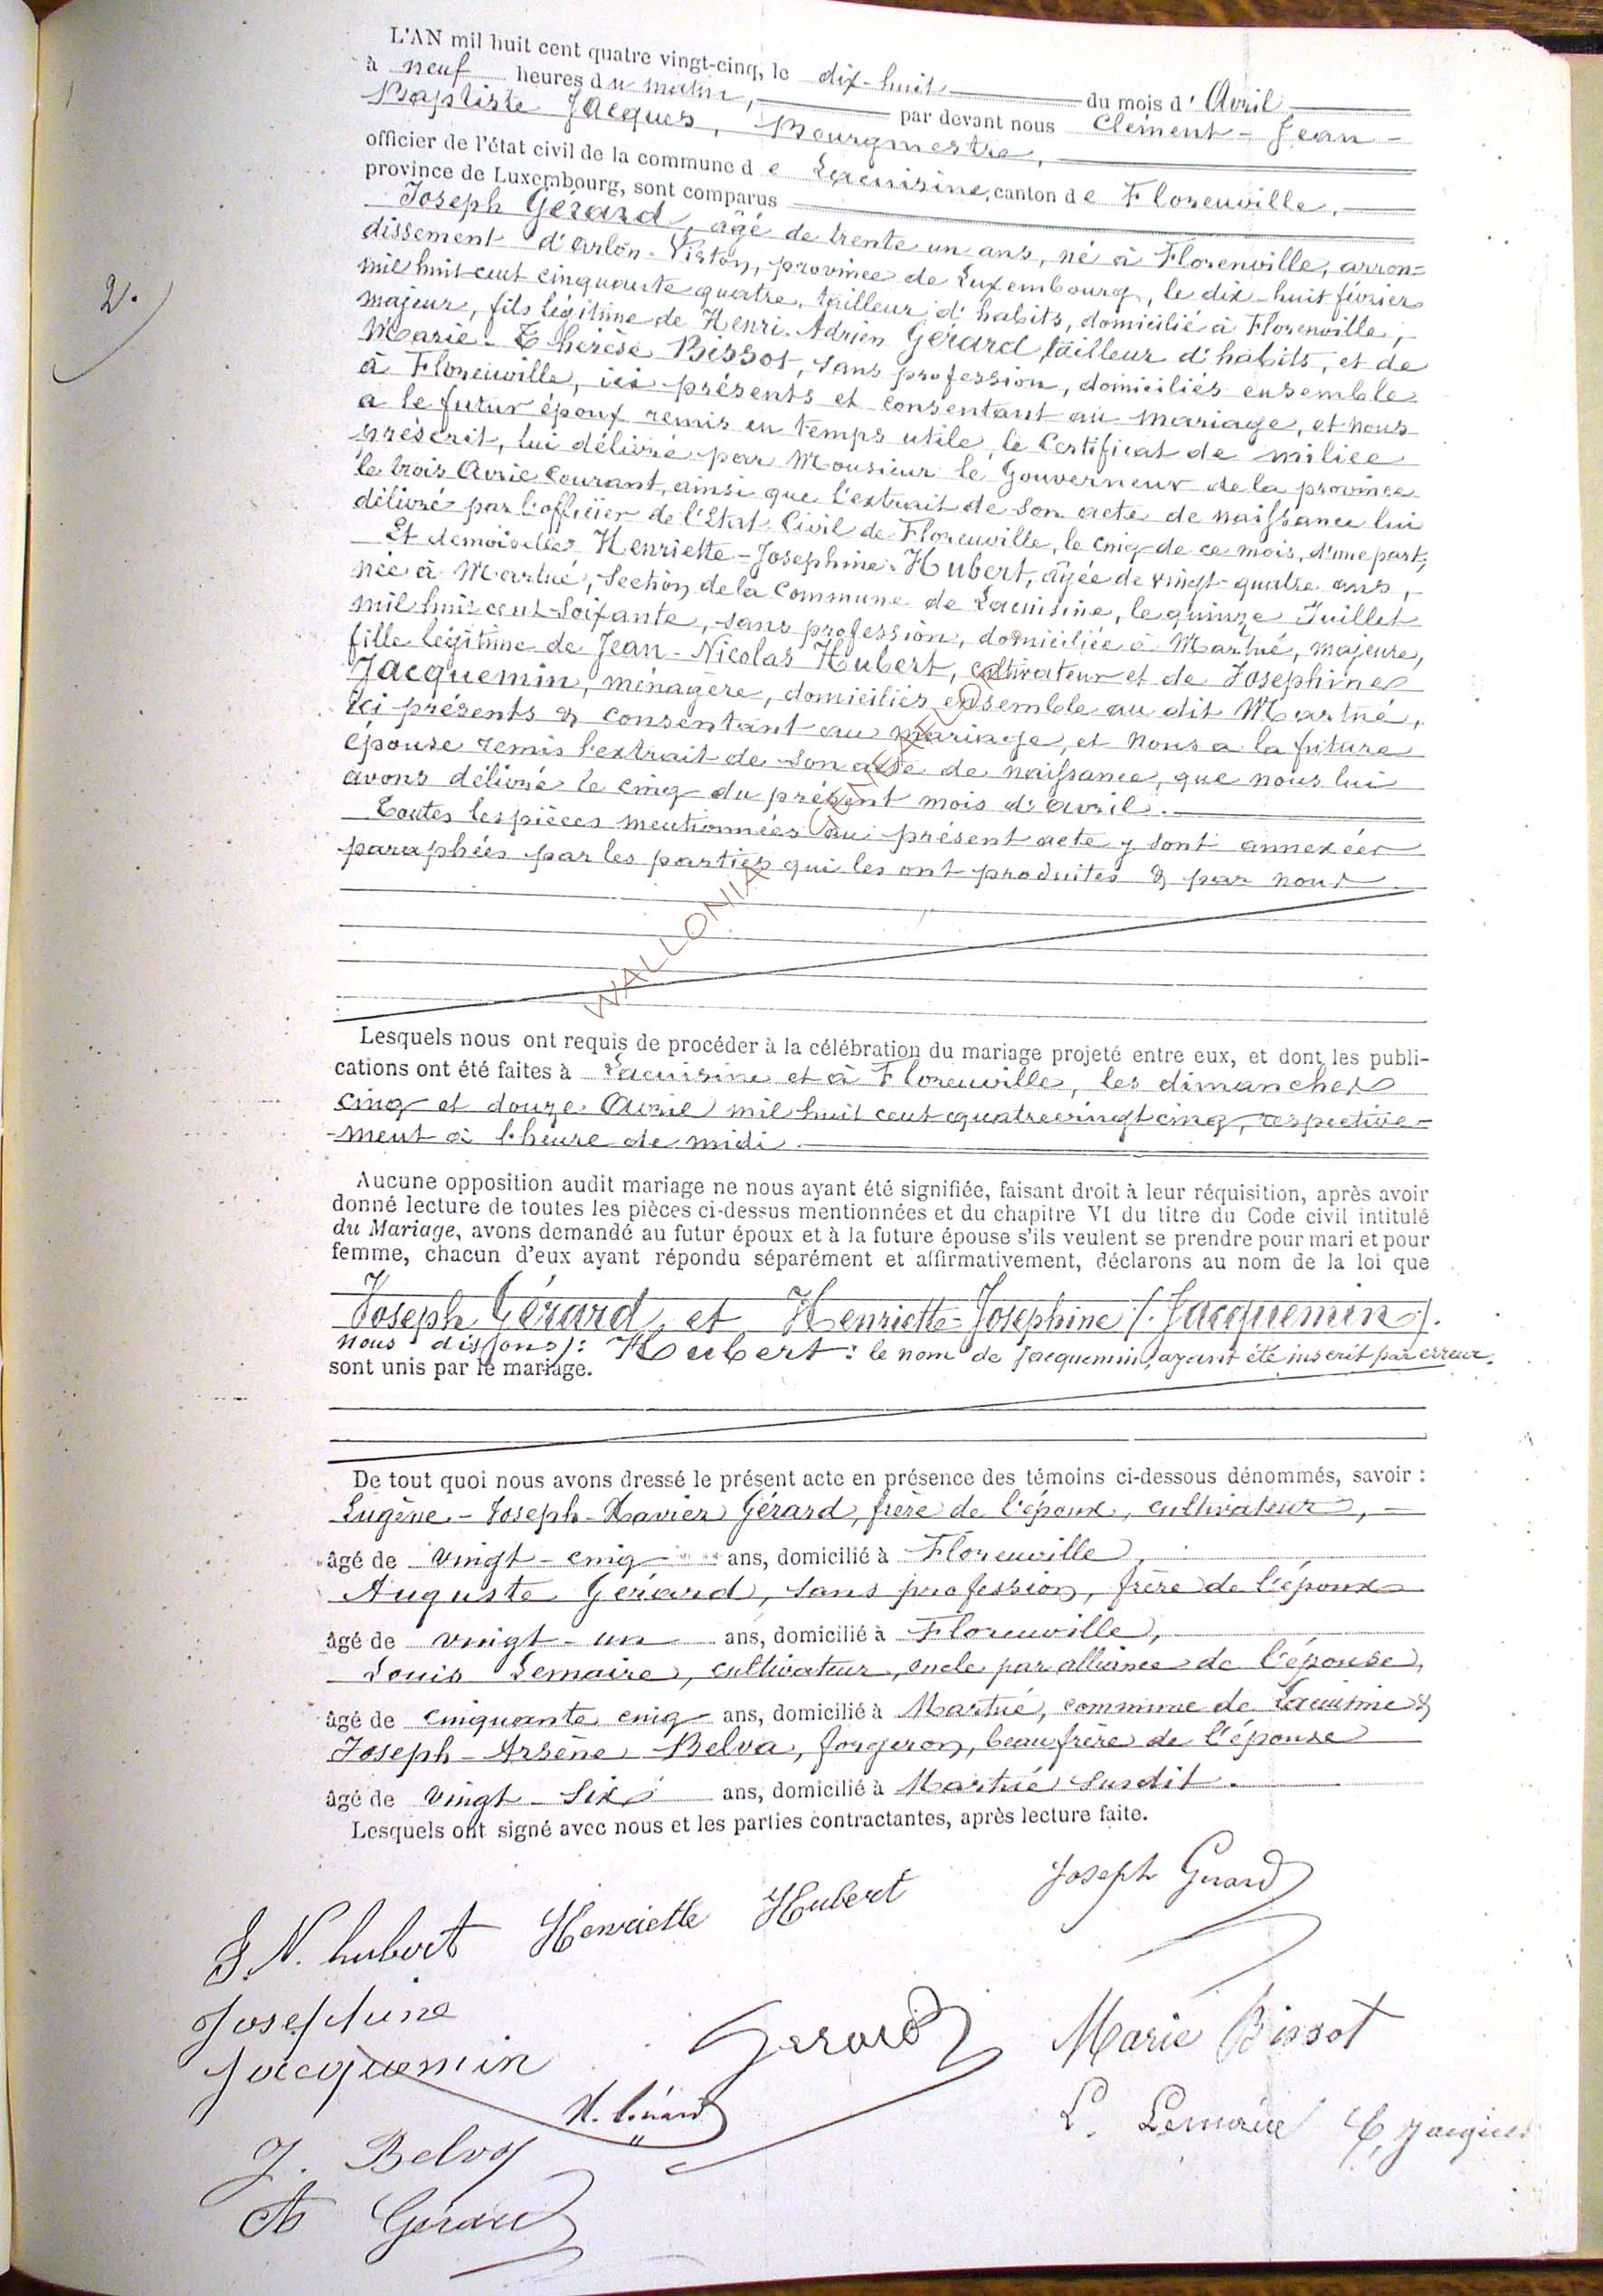 L'AN mil huit cent quatre vingt-cinq, le dix-huit du mois d' Avril
à neuf heures du matin, par devant nous Clément-Jean-
Baptiste Jacques, Bourgmestre,
officier de l'état civil de la commune de Lacuisine, canton de Florenville,
province de Luxembourg, sont comparus
Joseph Gérard, âgé de trente un ans, né à Florenville, arron=
dissement d'Arlon-Virton, province de Luxembourg, le dix-huit février
mil huit cent cinquante quatre, tailleur d'habits, domicilié à Florenville,
majeur, fils légitime de Henri-Adrien Gérard tailleur d'habits, et de
Marie-Thérèse Bissot, sans profession, domiciliés ensemble
à Florenville, ici présents et consentant au mariage, et nous
a le futur époux remis en temps utile, le Certificat de milice
prescrit, lui délivré par Monsieur le Gouverneur de la province
le trois Avril courant, ainsi que l'extrait de son acte de naissance lui
délivré par l'officier de l'Etat-Civil de Florenville, le cinq de ce mois, d'une part;
Et demoiselle Henriette-Josephine Hubert, âgée de vingt-quatre ans,
née à Martué, Section de la Commune de Lacuisine, le quinze Juillet
mil huit cent-soixante, sans profession, domiciliée à Martué, majeure,
fille légitime de Jean-Nicolas Hubert, cultivateur et de Josephine
Jacquemin, ménagère, domiciliés ensemble au dit Martué,
ici présents & consentant au mariage, et nous a la future
épouse remis l'extrait de son acte de naissance, que nous lui
avons délivré le cinq du présent mois d'avril.
Toutes les pièces mentionnées au présent acte y sont annexées
paraphées par les parties qui les ont produites & par nous
WALLONIA GENEALOGY
2.
Lesquels nous ont requis de procéder à la célébration du mariage projeté entre eux, et dont les publi-
cations ont été faites à Lacuisine et à Florenville, les dimanches
cinq et douze Avril mil huit cent quatrevingt cinq, respective-
-ment à l'heure de midi.
Aucune opposition audit mariage ne nous ayant été signifiée, faisant droit à leur réquisition, après avoir
donné lecture de toutes les pièces ci-dessus mentionnées et du chapitre VI du titre du Code civil intitulé
du Mariage, avons demandé au futur époux et à la future épouse s'ils veulent se prendre pour mari et pour
femme, chacun d'eux ayant répondu séparément et affirmativement, déclarons au nom de la loi que
Joseph Gérard et Henriette-Josephine (. Jacquemin).
nous disons): Hubert: le nom de Jacquemin, ayant été inscrit par erreur.
sont unis par le mariage.
De tout quoi nous avons dressé le présent acte en présence des témoins ci-dessous dénommés, savoir :
Eugène-Joseph-Xavier Gérard, frère de l'époux, cultivateur,
âgé de vingt-cinq ans, domicilié à Florenville,
Auguste Gérard, sans profession, frère de l'époux
âgé de vingt-un ans, domicilié à Florenville,
Louis Lemaire, cultivateur, oncle par alliance de l'épouse,
âgé de cinquante cinq ans, domicilié à Martué, commune de Lacuisine &
Joseph-Arsène Belva, forgeron, beau frère de l'épouse
âgé de vingt-six ans, domicilié à Martué susdit.
Lesquels ont signé avec nous et les parties contractantes, après lecture faite.
Joseph Gerard
J. N. hubert Henriette Hubert
Josephine
Jacquemin
Gerard
Marie Bissot
L. Lemaire C. Jacques
J. Belva
Gérard